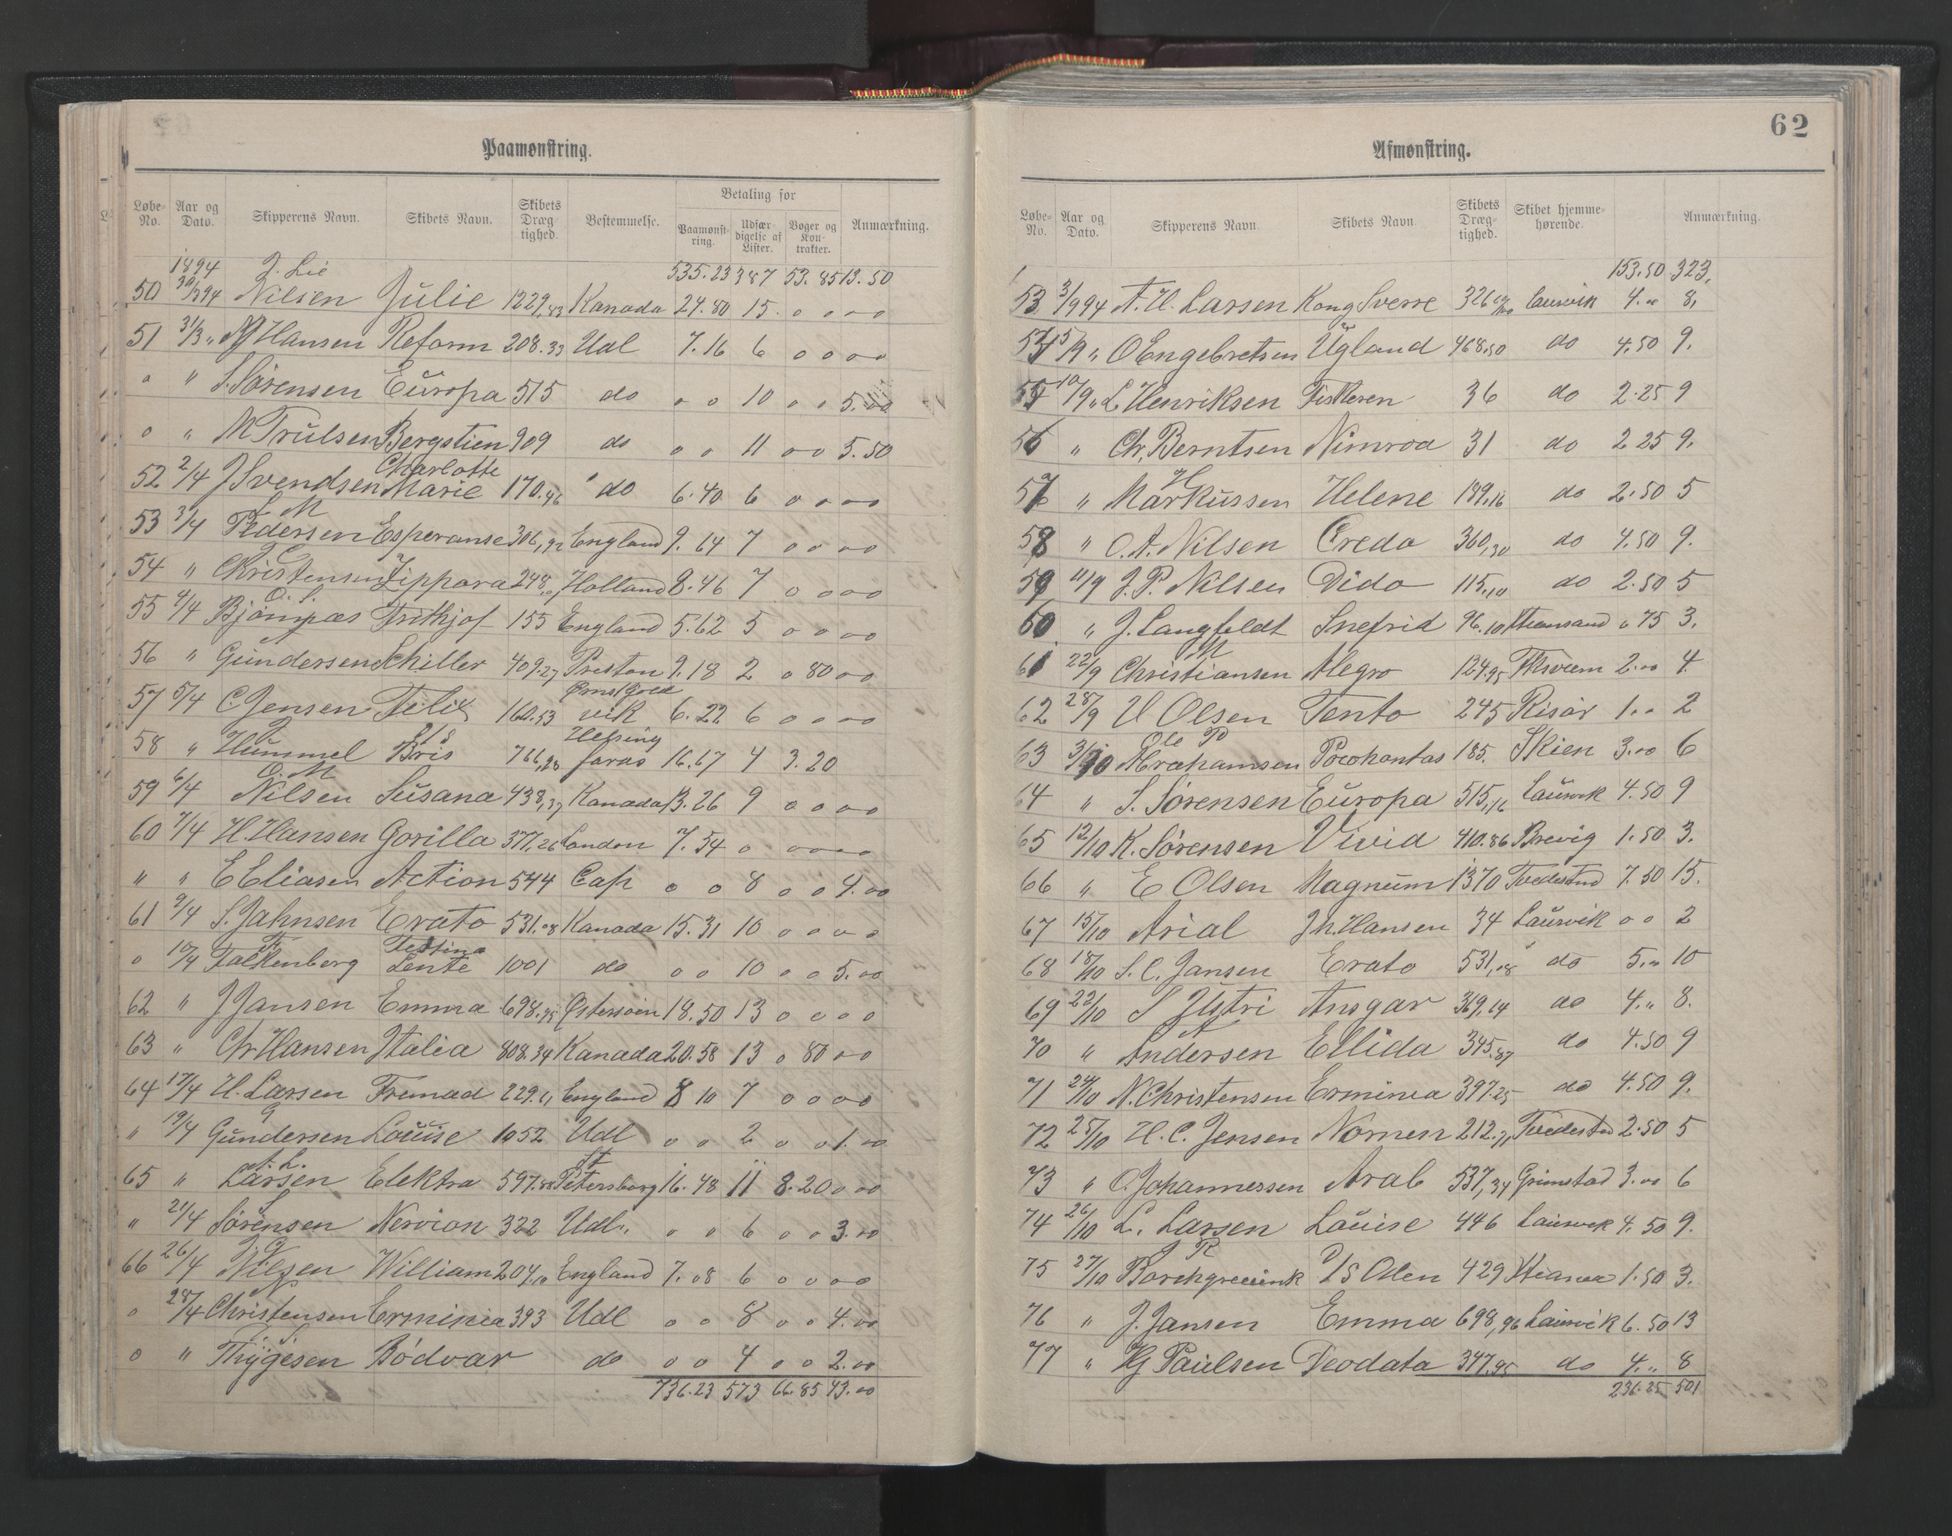 62
Paamønstring.
Løbe-No. Aar og Dato. Skipperens Navn. Skibets Navn. Skibets Dræg-tighed. Bestemmelse. Betaling for Paamønst-ring. Udfær-digelse af Lister. Bøger og Kon-trakter. Anmærkning.
1894 J. Lie 535.23 387 53.85 13.50
50 30/3 94 Nilsen Julie 1229,83 Kanada 24.80 15. o o o o
51 31/3 " Hansen Reform 208.33 Udl 7.16 6 o o o o
o " S. Sørensen Europa 515 do o o 10 o o 5.00
o " M Trulsen Bergstien 909 do o o 11 o o 5.50
52 2/4 J Svendsen Charlotte Marie 170.46 do 6.40 6 o o o o
53 3/4 L M Pedersen Esperanse 306,92 England 9.64 7 o o o o
54 " Kristensen Zippora 248 Holland 8.46 7 o o o o
55 4/4 O. L. Bjönnæs Frithjof 155 England 5.62 5 o o o o
56 " Gundersen Schiller 409.27 Preston 9.18 2 o 80 o o
57 5/4 C Jensen Felix 160.53 Ørnskjold vik 6.22 6 o o o o
58 " Hummel S/S Bris 766,20 Helsing fores 16.67 4 3.20
59 6/4 O. M Nilsen Susana 438,37 Kanada 13.26 9 o o o o
60 7/4 H. Hansen Gorilla 377,26 London 7.54 o o o o o
" " E Eliasen Action 544 Cap o o 8 o o 4.00
61 9/4 S. Jahnsen Erato 531.08 Kanada 15.31 10 o o o o
o 10/4 F. Falkenberg Festina Lente 1001 do o o 10 o o 5.00
62 " J Jansen Emma 698.95 Østersöen 18.50 13 o o o o
63 " Chr Hansen Italia 808.34 Kanada 20.58 13 o 80 o o
64 17/4 H. Larsen Fremad 229.61 England 8 10 7 o o o o
" 19/4 G Gundersen Louise 1052 Udl o o 2 o o 1.00
65 " A. L. Larsen Elektra 597.85 St Petersborg 16.48 11 8.20 o o o
" 21/4 L Sörensen Nervion 322 Udl. o o 6 o o 3.00
66 26/4 J. G Nilsen William 204,10 England 7.08 6 o o o o
o 28/4 N Christensen Erminia 393 Udl o o 8 o o 4.00
o " Thygesen Bödvar do o o 4 o o 2.00
736.23 573 66.85 43.00
Afmønstring.
Løbe-No. Aar og Dato. Skipperens Navn. Skibets Navn. Skibets Dræg-tighed. Skibet hjemme-hørende. Anmærkning.
153.50 323,
53 3/9 94 A. H. Larsen Kong Sverre 326 Laurvik 4.00 8,
54 5/9 " O Engebretsen Ugland 468.50 do 4.50 9.
55 10/9 " L Henriksen Fiskeren 36 do 2.25 9
56 " Chr. Berntsen Nimrod 31 do 2 25 9.
57 " H Markussen Helene 189.16 do 2.50 5
58 " O. A. Nilsen Credo 360,30 do 4.50 9.
59 11/9 J. P. Nilsen Dido 115,10 do 2.50 5
60 " J. Langfeldt Snefrid 96.10 Kristiansand o 75 3.
61 22/9 M Christiansen Alegro 124.95 2.00 4
62 28/9 U Olsen Tento 245 Risör 1.00 2
63 3/10 Ole P Abrahamsen Pocohontas 185. Skien 3.00 6
64 " S. Sørensen Europa 515,16 Laurvik 4.50 9
65 12/10 K. Sørensen Vivid 410.86 Brevig 1.50 3.
66 " E Olsen Magnum 1370 Tvedestrd 7.50 15.
67 15/10 Arial Jh. Hansen 34 Laurvik o o 2
68 18/10 S. C. Jansen Erato 531,08 do 5.00 10
69 22/10 S Istri Ansgar 369.14 do 4.00 8.
70 " A Andersen Ellida 345.87 do 4.50 9
71 24/10 N. Christensen Erminia 397.25 do 4.50 9.
72 25/10 H. C. Jensen Nornen 212.71 Tvedestrd 2.50 5
73 " O. Johannessen Arab 537,34 Grimstad 3.00 6
74 26/10 L. Larsen Louise 446 Laurvik 4.50 9.
75 27/10 J R Borchgrevink D/S Oden 429 Kriania 1.50 3.
76 " J. Jansen Emma 698,96 Laurvik 6.50 13
77 " Hj Paulsen Deodata 347,95 do 4.00 8
236.25 501